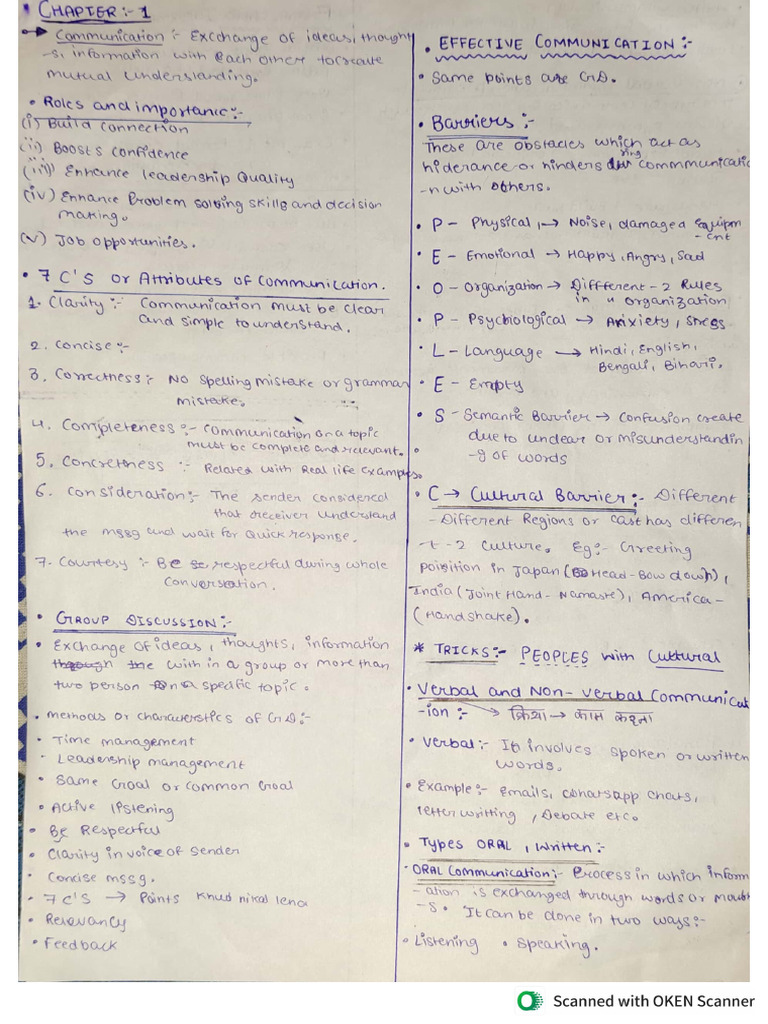 CHAPTER :- 1
Communication :- Excchange of ideas, thought
-s, information with each other to create
mutual understanding.
• Roles and importance :-
(i) Build connection
(ii) Boosts confidence
(iii) Enhance leadership Quality
(iv) Enhance Problem solving skills and decision
making.
(v) Job opportunities.
• 7 C'S or Attributes of communication.
1. Clarity :- Communication must be clear
and simple to understand.
2. Concise :-
3. Correctness :- No spelling mistake or grammar
mistake.
4. Completeness :- Communication on a topic
must be complete and relevant.
5. Concretness :- Related with Real life Examples.
6. Consideration :- The sender considered
that receiver understand
the mssg and wait for quick response.
7. Courtesy :- Be respectful during whole
conversation.
• GROUP DISCUSSION :-
• Exchange of ideas, thoughts, information
with in a group or more than
two person on a specific topic.
• methods or characterstics of GD :-
• Time management
• Leadership management
• Same Goal or common Goal
• Active listening
• Be Respectful
• Clarity in voice of sender
• Concise mssg.
• 7 C'S → Points Khud nikal lena
• Relevancy
• Feedback
• EFFECTIVE COMMUNICATION :-
• Same points are GD.
• Barriers :-
These are obstacles which act as
hiderance or hinders during commmunicatio
-n with others.
• P - Physical, → Noise, damaged Equipm
-ent
• E - Emotional → Happy, Angry, Sad
• O - Organization → Diffferent-2 Rules
in organization
• P - Psychological → Anxiety, Stress
• L - Language → Hindi, English,
Bengali, Bihari.
• E - Empty
• S - Semantic Barrier → Confusion create
due to unclear or misunderstandin
-g of words
• C → Cultural Barrier :- Different
-Different Regions or cast has differen
-t-2 culture. Eg :- Greeting
position in Japan (Head-Bow down),
India (Joint Hand - Namaste), America -
(Handshake).
* TRICKS :- PEOPLES with Cultural
• Verbal and Non-verbal Communicat
-ion :- → क्रिया → काम करना
• Verbal :- It involves spoken or written
words.
• Example :- Emails, whatsapp chats,
letter writting, Debate etc.
• Types ORAL, Written :-
• ORAL Communication :- Process in which inform
-ation is exchanged through words or mouth
-s. It can be done in two ways :-
• Listening • Speaking.
Scanned with OKEN Scanner